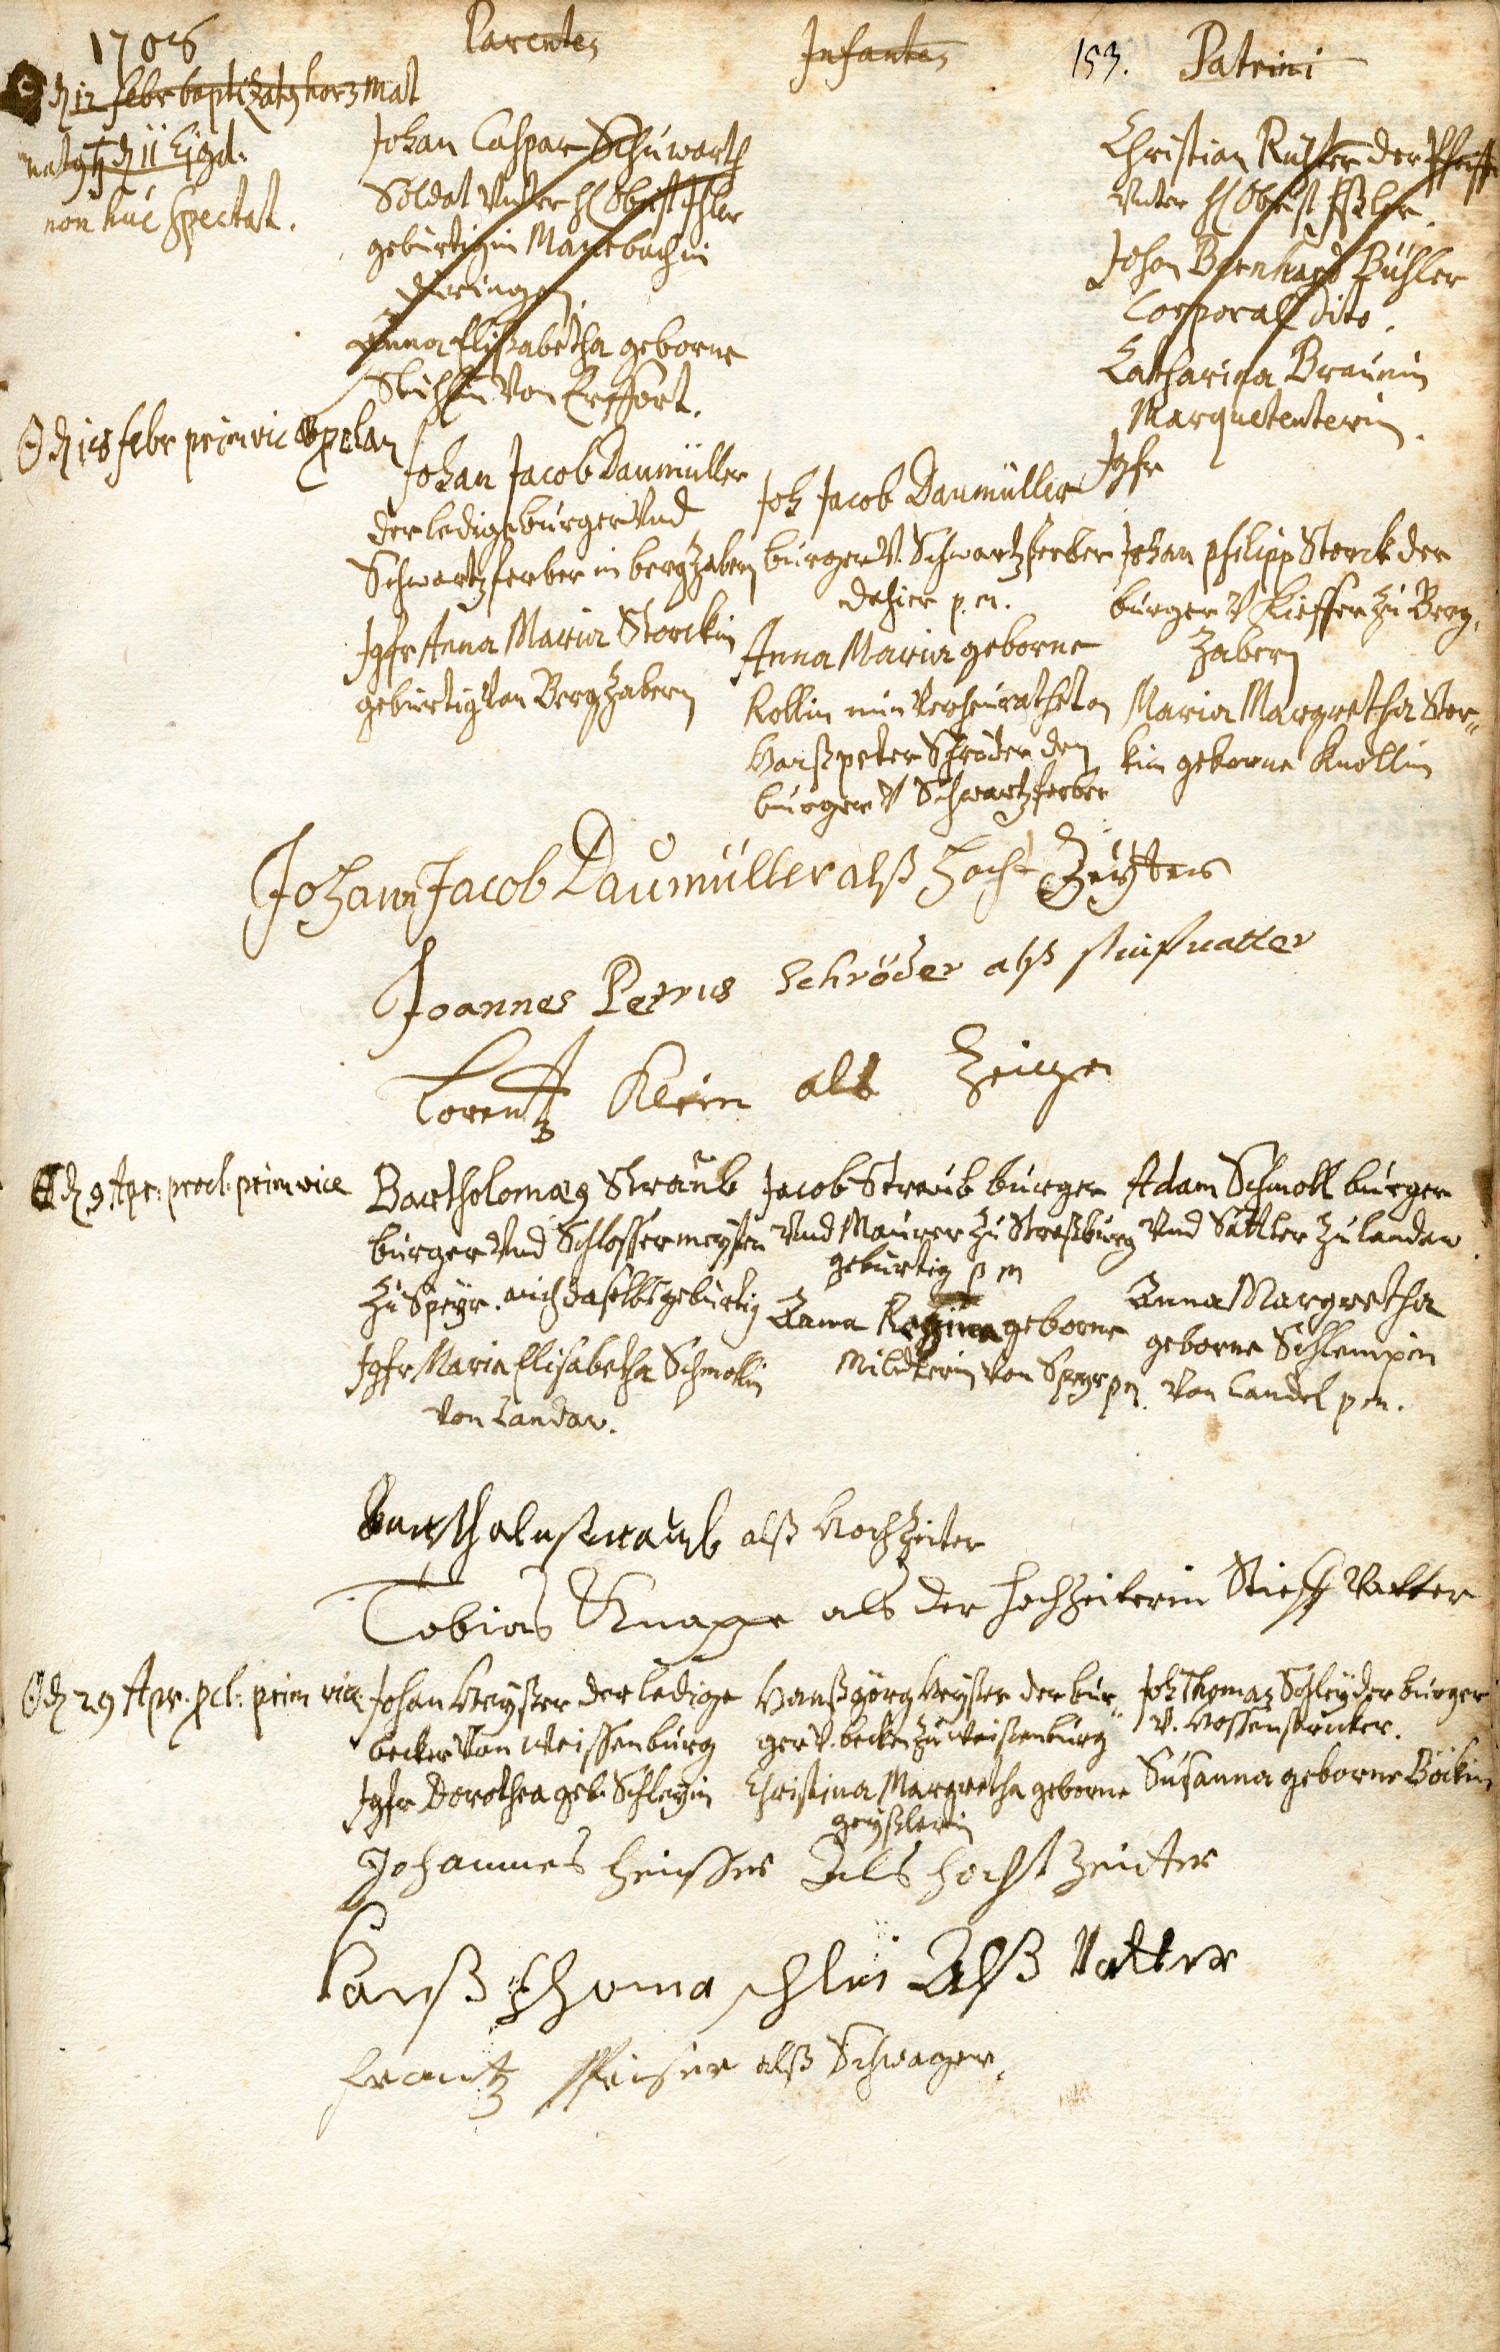 1706
Parentes
Infantes
153. Patrini
12 febr baptizat9 hor 3 mat
nat9 11 Ejqd:
non huc spectat.
Johan Caspar Schüwarth
Soldat Unter H Obrist Isler
gebürtig in Manebach in
Düringen
Anna Elisabetha geborne
von Erffort.
Christian der Pfeiffer
Unter H Obrist Isler.
Johan Bernhard Bühler
Corporal dito.
Catharina Braunin
Marquetenterin.
18 febr prim vic
Johan Jacob Daumüller
der ledige burger Und
Schwartzferber in bergzabern
Jgfr Anna Maria Storckin
gebürtig Von Bergzabern
Joh Jacob Daumüller
burger V. Schwartzferber
dahier p. m.
Anna Maria geborne
Kollin nun Verheurathet an
Hanß peter Schröder den
burger V Schwartzferber
Jgfr
Johan philipp Storck der
burger V Kieffer Zu Berg,
Zabern
Maria Margretha Stor-
kin geborne Knollin
Johann Jacob Daumüller alß Hochzeyter
Joannes Petrus Schröder alß stiufuatter
Lorentz Klein als Zeuge
9 Apr: procl: prim vice
Bartholomæ9 Straub
burger Und Schlossermeyster
Zu Speyr. auch daselbst gebürtig
Jgfr Maria Elisabetha Schmollin
Von Landau.
Jacob Straub burger
Und Maurer Zu Straßburg
gebürtig p m
Anna Regina geborne
Von Speyr pm.
Adam Schmoll burger
Und Sattler Zu landau
Anna Margretha
geborne Schlempin
Von Landel p m.
Barthol straub alß Hochzeiter
Tobias Knappe als der Hochzeiterin Stieff Vatter
29 Apr. pcl: prim vice
Johan Heyßer der ledige
becker Von Weissenburg
Jgfr Dorothea geb. Schleyin
Hanß görg Heyßer der bur-
ger V. becken Zu Weissenburg
Christina Margretha geborne
geyßlerin
Joh Thomas Schley der burger
V. Hossenstricker.
Susanna geborne Böckin
Johannes Heisser Als Hochzeiter
Hanß Thoma schlei Alß Vatter
Frantz alß Schwager.